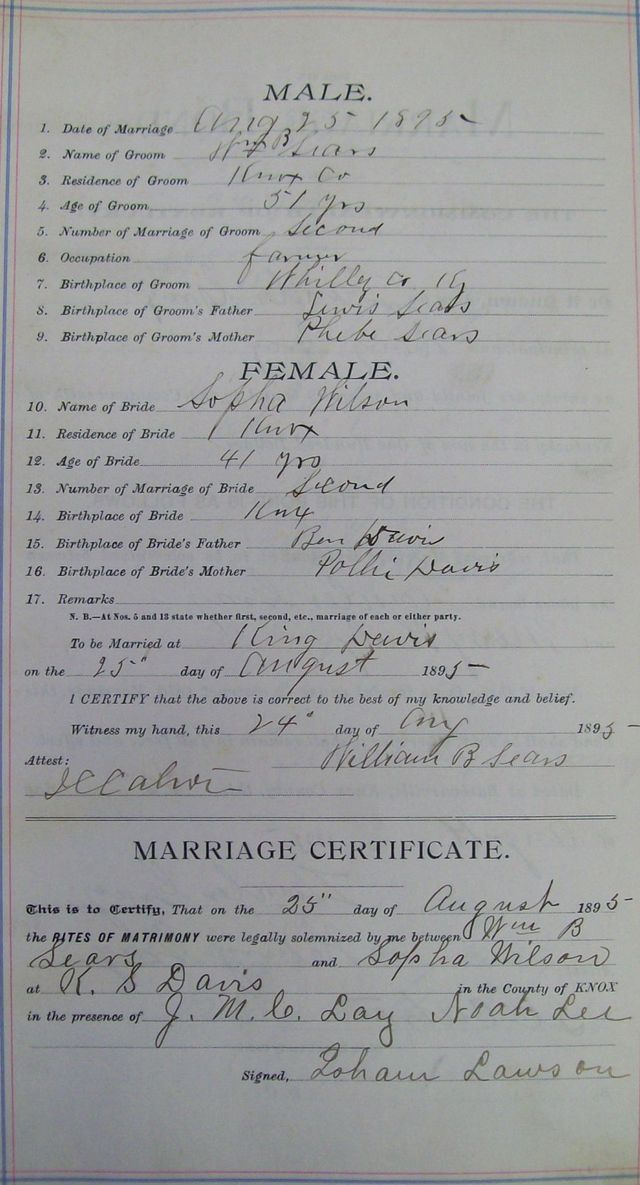 MALE.
1. Date of Marriage Aug 25 1895
2. Name of Groom Wm B Sears
3. Residence of Groom Knox Co
4. Age of Groom 51 yrs
5. Number of Marriage of Groom Second
6. Occupation farmer
7. Birthplace of Groom Whitley Co Ky
8. Birthplace of Groom's Father Lewis Sears
9. Birthplace of Groom's Mother Phebe Sears
FEMALE.
10. Name of Bride Sopha Wilson
11. Residence of Bride Knox
12. Age of Bride 41 yrs
13. Number of Marriage of Bride Second
14. Birthplace of Bride Knox
15. Birthplace of Bride's Father Ben Davis
16. Birthplace of Bride's Mother Pollie Davis
17. Remarks
N. B.—At Nos. 5 and 13 state whether first, second, etc., marriage of each or either party.
To be Married at King Davis
on the 25" day of August 1895
I CERTIFY that the above is correct to the best of my knowledge and belief.
Witness my hand, this 24" day of Aug 1895
William B Sears
Attest:
MARRIAGE CERTIFICATE.
This is to Certify, That on the 25" day of August 1895
the RITES OF MATRIMONY were legally solemnized by me between Wm B
Sears and Sopha Wilson
at K. S Davis in the County of KNOX
in the presence of J. M. C. Lay Noah Lee
Signed, Lawson